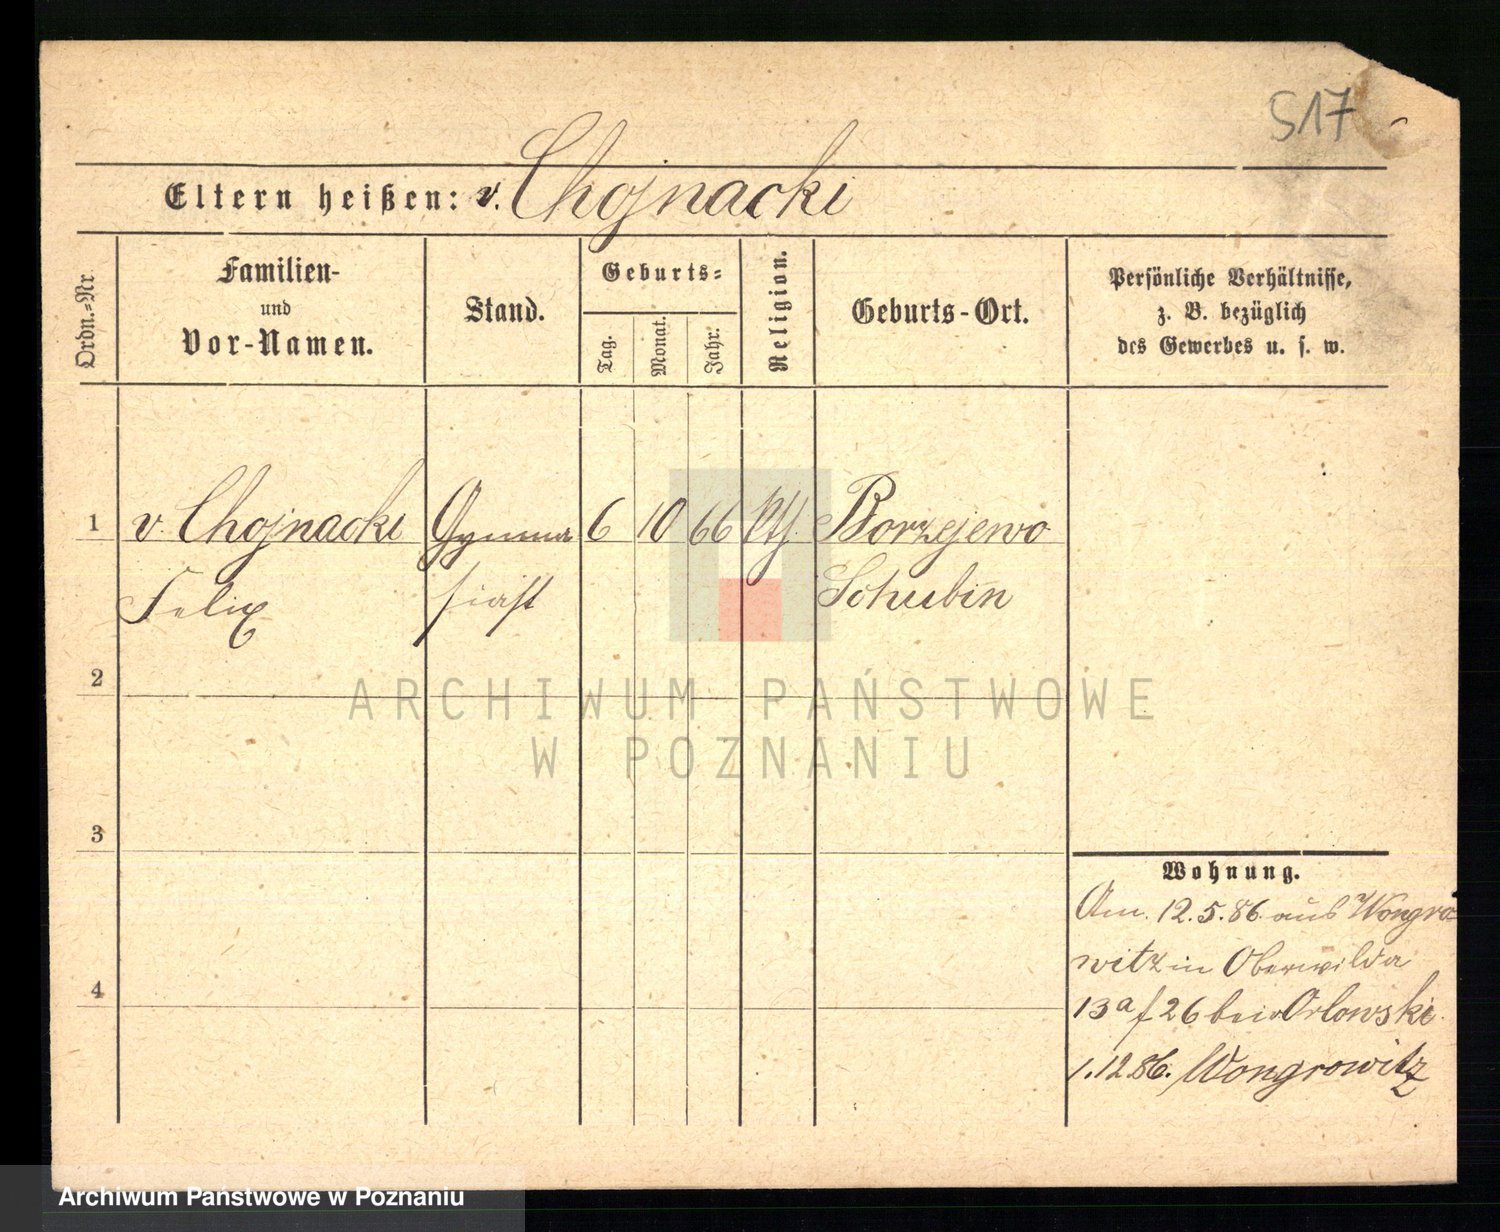 517
Eltern heißen: v. Chojnacki
Ordn.-Nr.
Familien-
und
Vor-Namen.
Stand.
Geburts-
Tag.
Monat.
Jahr.
Religion.
Geburts-Ort.
Persönliche Verhältnisse,
z. B. bezüglich
des Gewerbes u. s. w.
1 v. Chojnacki Gymna 6 10 66 kth. Borzejewo
Felix siast Schubin
2
ARCHIWUM PAŃSTWOWE
W POZNANIU
3
Wohnung.
Am 12.5.86 aus Wongro-
witz in Oberwilda
4
13a f 26 bei Orlowski.
1.12.86. Wongrowitz
Archiwum Państwowe w Poznaniu